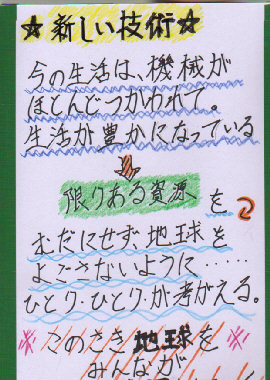 ☆新しい技術☆
今の生活は、機械が
ほとんどつかわれて。
生活が豊かになっている
限りある資源を
むだにせず、地球を
よごさないように……
ひとり・ひとり・が考がえる。
このさき地球を
みんなが